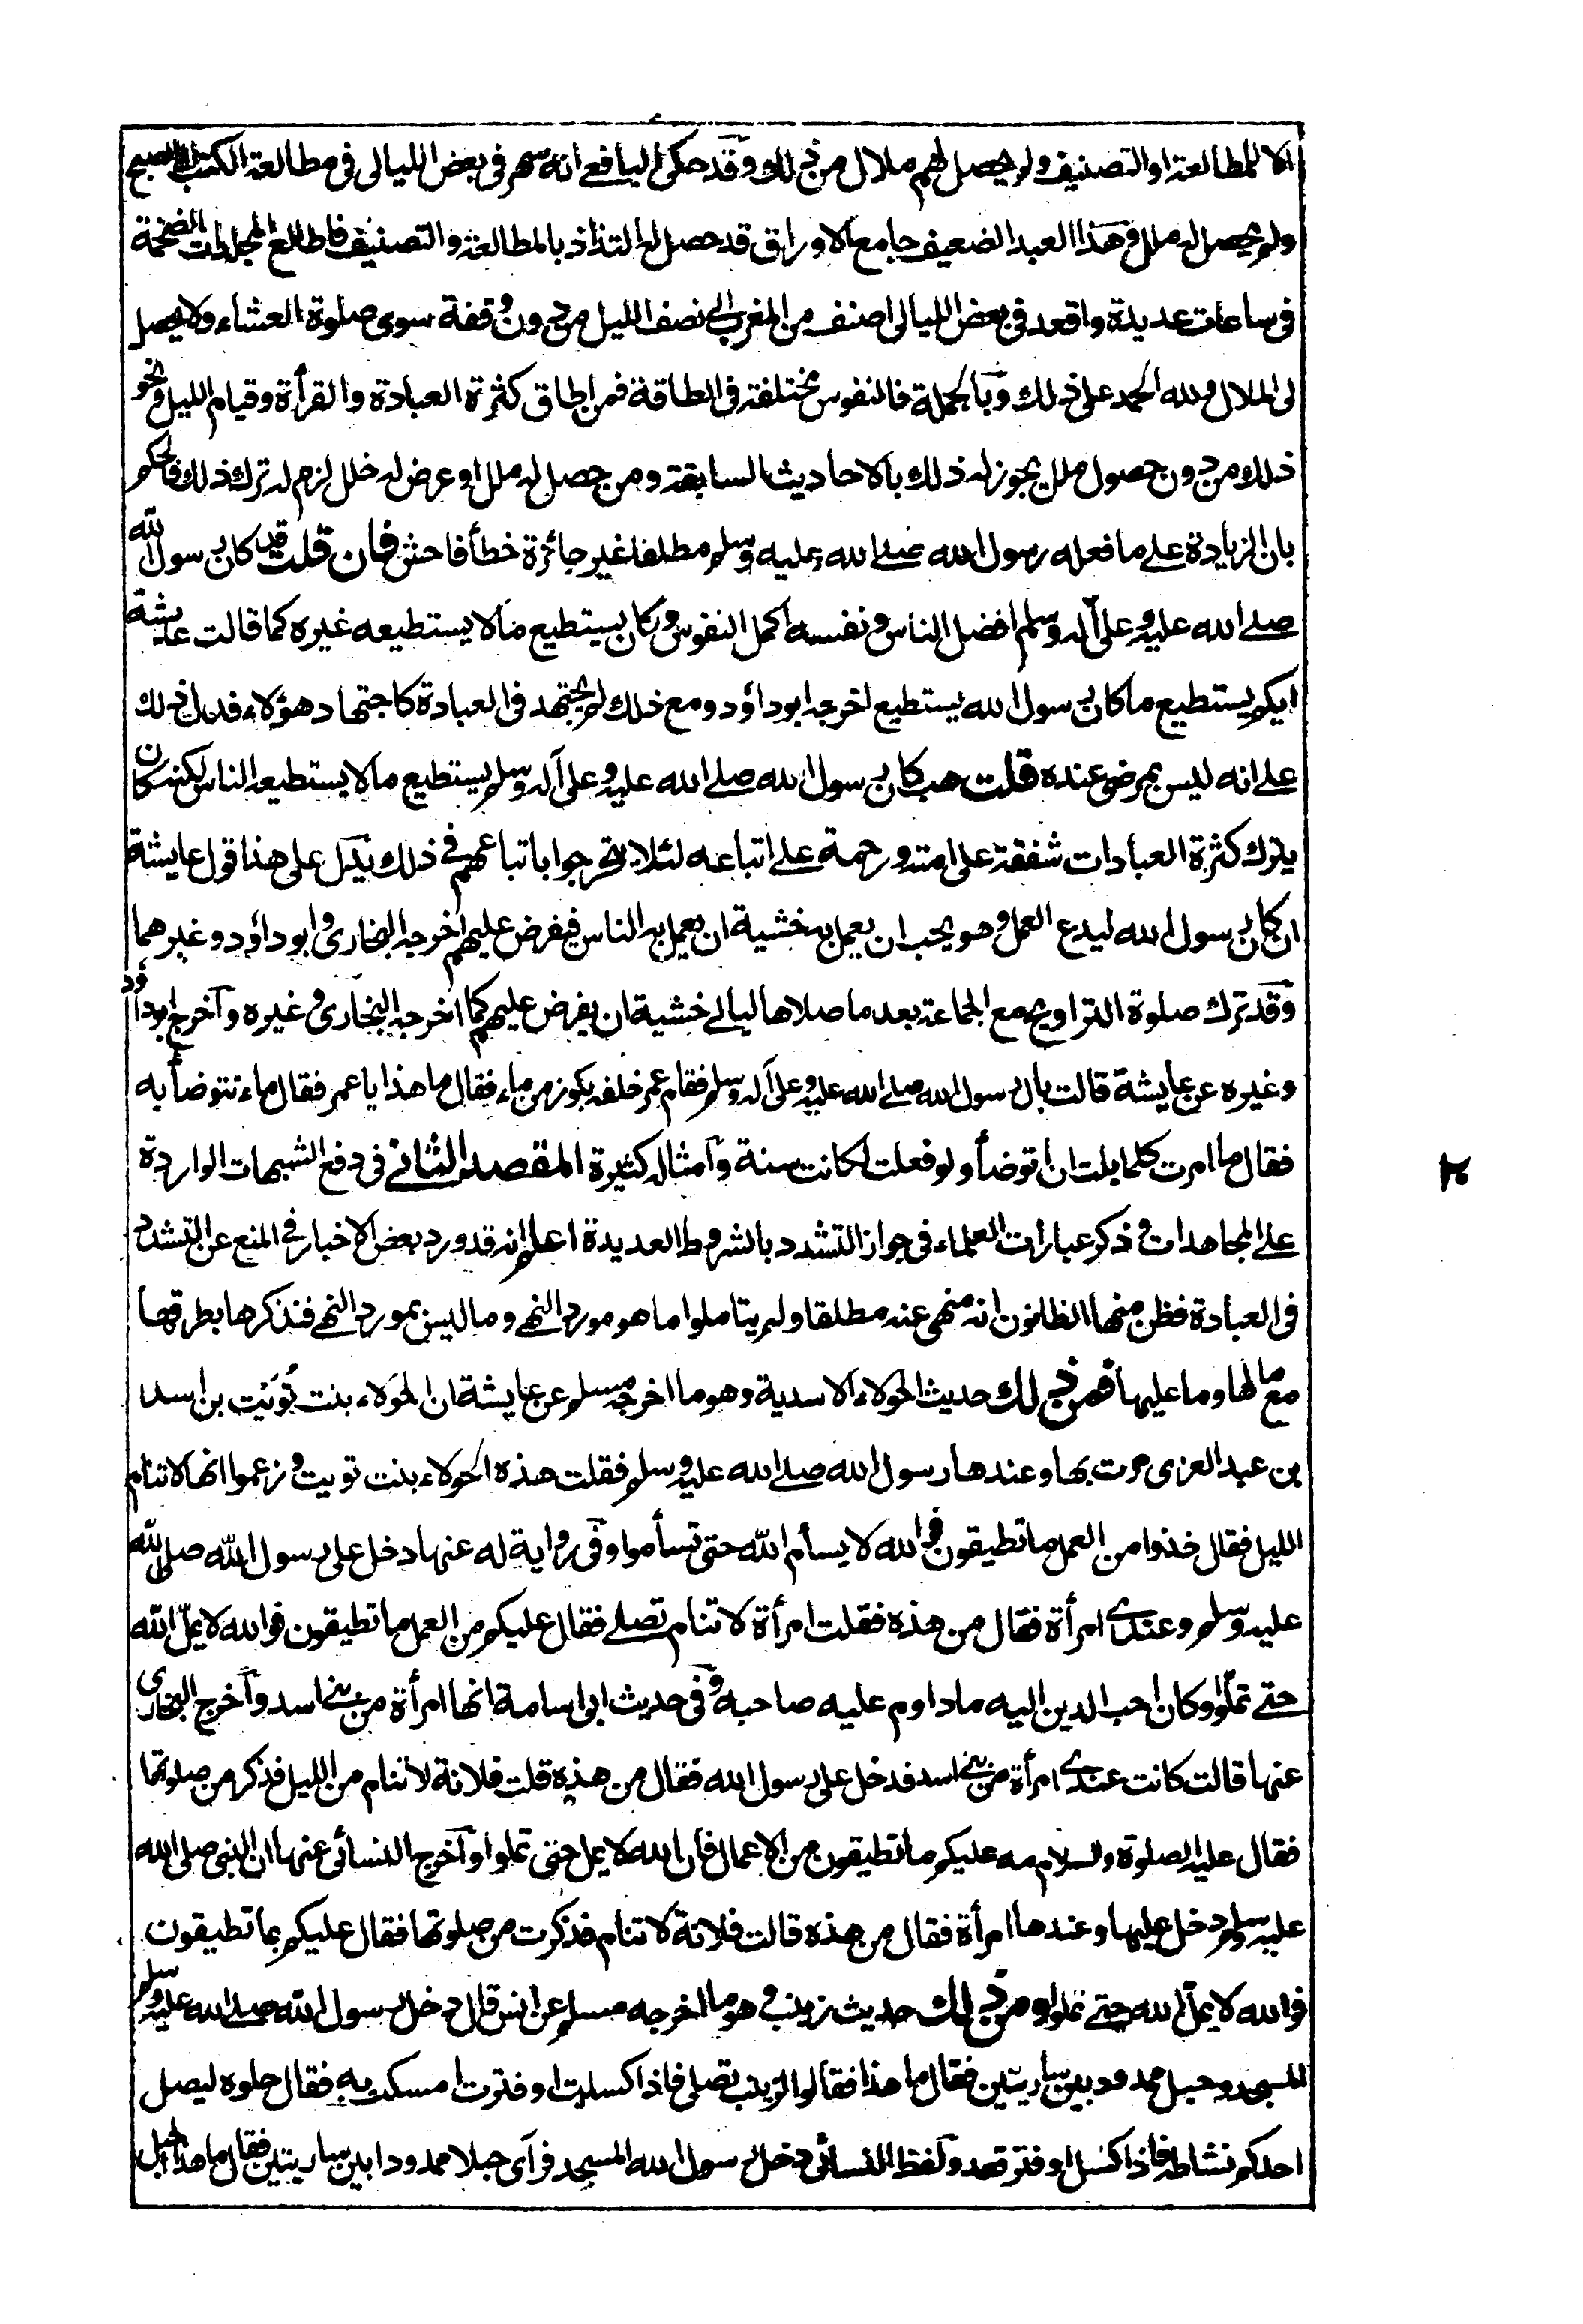 الا للمطالعة او التصنيف ولم يحصل لهم ملال من ذلك وقد حكى اليافعي انه سهر في بعض الليالى في مطالعة الكتب الى الصبح
ولم يحصل له ملل وهذا العبد الضعيف جامع الاوراق قد حصل له التذاذ بالمطالعة والتصنيف فاطالع المجلدات الضخمة
في ساعات عديدة واقعد في بعض الليالى اصنف من المغرب الى نصف الليل من دون وقفة سوى صلوة العشاء ولا يحصل
لى الملال ولله الحمد على ذلك وبالجملة فالنفوس مختلفة في الطاقة فمن اطاق كثرة العبادة والقرأة وقيام الليل ونحو
ذلك من دون حصول ملل يجوز له ذلك بالاحاديث السابقة ومن حصل له ملل او عرض له خلل لزم له ترك ذلك فالحكم
بان الزيادة على ما فعله رسول الله صلى الله عليه وسلم مطلقا غير جائزة خطأ فاحش فان قلت قد كان رسول الله
صلى الله عليه وعلى آله وسلم افضل الناس ونفسه اكمل النفوس وكان يستطيع ما لا يستطيعه غيره كما قالت عايشة
ايكم يستطيع ما كان رسول الله يستطيع اخرجه ابو داؤد ومع ذلك لم يجتهد في العبادة كاجتهاد هؤلاء فدل ذلك
على انه ليس بمرضى عنده قلت هب كان رسول الله صلى الله عليه وعلى آله وسلم يستطيع ما لا يستطيعه الناس لكنه كان
يترك كثرة العبادات شفقة على امته ورحمة على اتباعه لئلا يتحرجوا باتباعهم في ذلك يدل على هذا قول عايشة
ان كان رسول الله ليدع العمل وهو يحب ان يعمل به خشية ان يعمل به الناس فيفرض عليهم اخرجه البخارى وابو داؤد وغيرهما
وقد ترك صلوة التراويح مع الجماعة بعد ما صلاها ليالى خشية ان يفرض عليهم كما اخرجه البخارى وغيره وآخرج ابو داؤد
وغيره عن عايشة قالت بال رسول الله صلى الله عليه وعلى آله وسلم فقام عمر خلفه بكوز من ماء فقال ما هذا يا عمر فقال ماء تتوضأ به
فقال ما امرت كلما بلت ان اتوضأ ولو فعلت لكانت سنة وآمثاله كثيرة المقصد الثانى في دفع الشبهات الواردة
على المجاهدات وذكر عبارات العلماء في جواز التشدد بالشروط العديدة اعلم انه قد ورد بعض الاخبار في المنع عن التشدد
في العبادة فظن منها الظانون انه منهى عنه مطلقا ولم يتاملوا ما هو مورد النهى وما ليس بمورد النهى فنذكرها بطرقها
مع ما لها وما عليها فمن ذلك حديث الحولاء الاسدية وهو ما اخرجه مسلم عن عايشة ان الحولاء بنت تُوَيْت بن اسد
بن عبد العزى مرت بها وعندها رسول الله صلى الله عليه وسلم فقلت هذه الحولاء بنت تويت وزعموا انها لا تنام
الليل فقال خذوا من العمل ما تطيقون فوالله لا يسأم الله حتى تسأموا وفى رواية له عنها دخل على رسول الله صلى الله
عليه وسلم وعندى امرأة فقال من هذه فقلت امرأة لا تنام تصلى فقال عليكم من العمل ما تطيقون فوالله لا يملّ الله
حتى تملّوا وكان احب الدين اليه ما داوم عليه صاحبه وفى حديث ابى اسامة انها امرأة من بنى اسد وآخرج البخارى
عنها قالت كانت عندى امرأة من بنى اسد فدخل على رسول الله فقال من هذه قلت فلانة لا تنام من الليل فذكر من صلوتها
فقال عليه الصلوة والسلام مه عليكم ما تطيقون من الاعمال فان الله لا يمل حتى تملوا وآخرج النسائى عنها ان النبى صلى الله
عليه وسلم دخل عليها وعندها امرأة فقال من هذه قالت فلانة لا تنام فذكرت من صلوتها فقال عليكم بما تطيقون
فوالله لا يملّ الله حتى تملوا ومن ذلك حديث زينب وهو ما اخرجه مسلم عن انس قال دخل رسول الله صلى الله عليه وسلم
المسجد وحبل ممدود بين ساريتين فقال ما هذا فقالوا لزينب تصلى فاذا كسلت او فترت امسكت به فقال حلوه ليصل
احدكم نشاطه فاذا كسل او فتر قعد ولفظ النسائى دخل رسول الله المسجد فرآى حبلا ممدودا بين ساريتين فقال ما هذا الحبل
٢٠